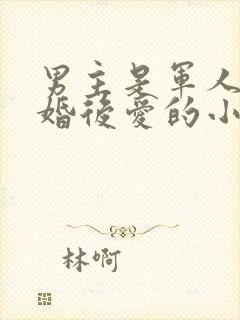 男主是軍人
婚後愛的小
林啊